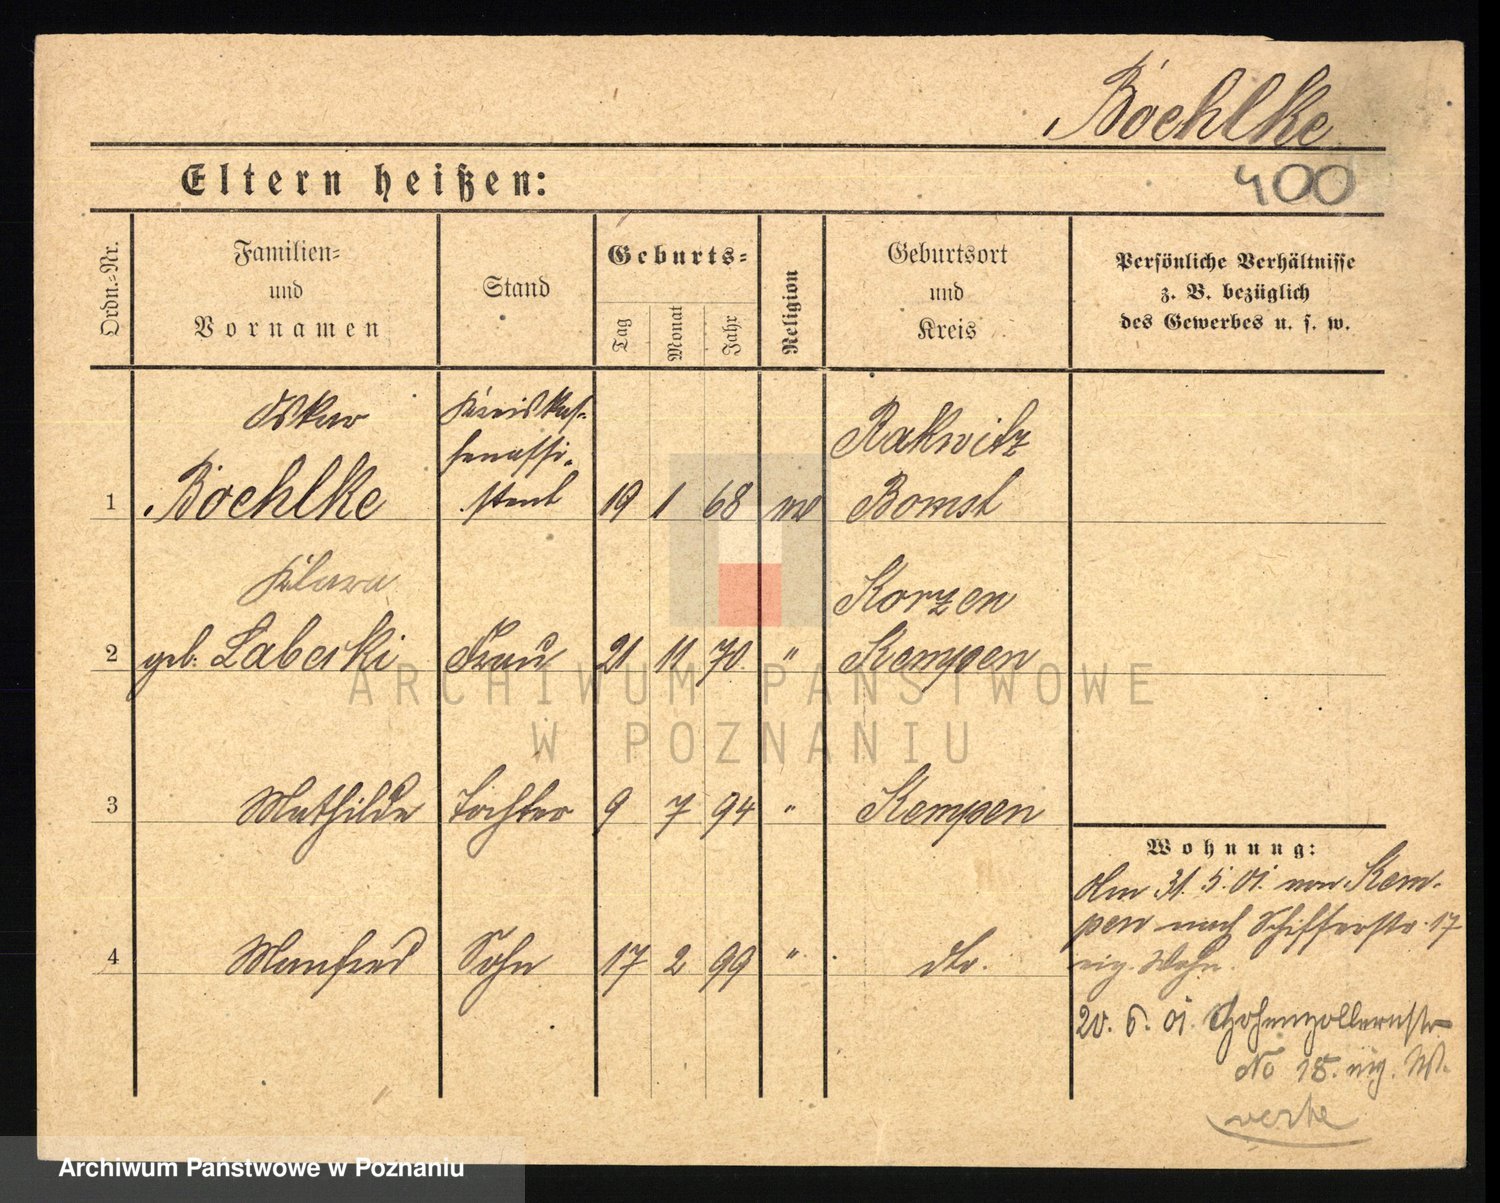 Boehlke
400
Eltern heißen:
Ordn.-Nr.
Familien-
und
Vornamen
Stand
Geburts-
Tag
Monat
Jahr
Religion
Geburtsort
und
Kreis
Persönliche Verhältnisse
z. B. bezüglich
des Gewerbes u. s. w.
Oskar
Kreiskas-
senassi-
stent
Rakwitz
1 Boehlke 19 1 68 Bomst
Klara
Korzen
2 geb. Frau 21 11 70 " Kempen
3 Mathilde Tochter 9 7 94 " Kempen
4 Manfred Sohn 17 2 99 " dto.
Wohnung:
Am 31. 5. 01. von Kem-
pen nach Schifferstr. 17
eig. Wohn.
20. 6. 01. Hohenzollernstr
No 18. eig. W.
verte
ARCHIWUM PAŃSTWOWE
W POZNANIU
Archiwum Państwowe w Poznaniu